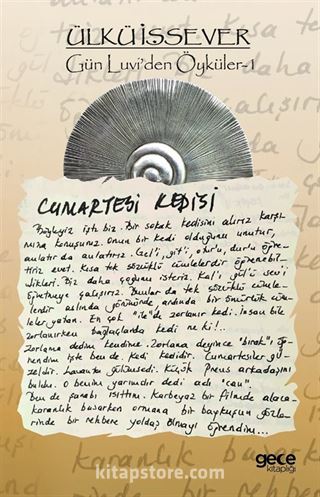 ÜLKÜ İSSEVER
Gün Luvi'den Öyküler-1
CUMARTESİ KEDİSİ
Böyleyiz işte biz. Bir sokak kedisini alırız karşı-
mıza konuşuruz. Onun bir kedi olduğunu unutur,
anlatır da anlatırız. Gel'i, git'i, otur'u, dur'u öğre-
tiriz evet. Kısa tek sözcüklü cümlelerdir öğrenebil-
dikleri. Biz daha çoğunu isteriz. Kal'ı gül'ü sev'i
öğretmeye çalışırız. Bunlar da tek sözcüklü cümle-
lerdir aslında görünümde ardında bir ömürlük cüm-
leler yatan. En çok "ile"de zorlanır kedi. İnsan bile
zorlanırken bağlaçlarda kedi ne ki!..
Zorlama dedim kendime. Zorlama deyince "bırak"ı öğ-
rendim işte ben de. Kedi kedidir. Cumartesiler gü-
zeldir. Lavanta gülümsedi. Küçük Pneus arkadaşını
buldu. O benim yarımdır dedi adı "can".
Ben de şarabı ısıttım. Karbeyaz bir filmde alaca-
karanlık basarken ormana bir baykuşun gözle-
rinde bir rehbere yoldaş olmayı öğrendim...
gece
kitaplığı
kitapstore.com